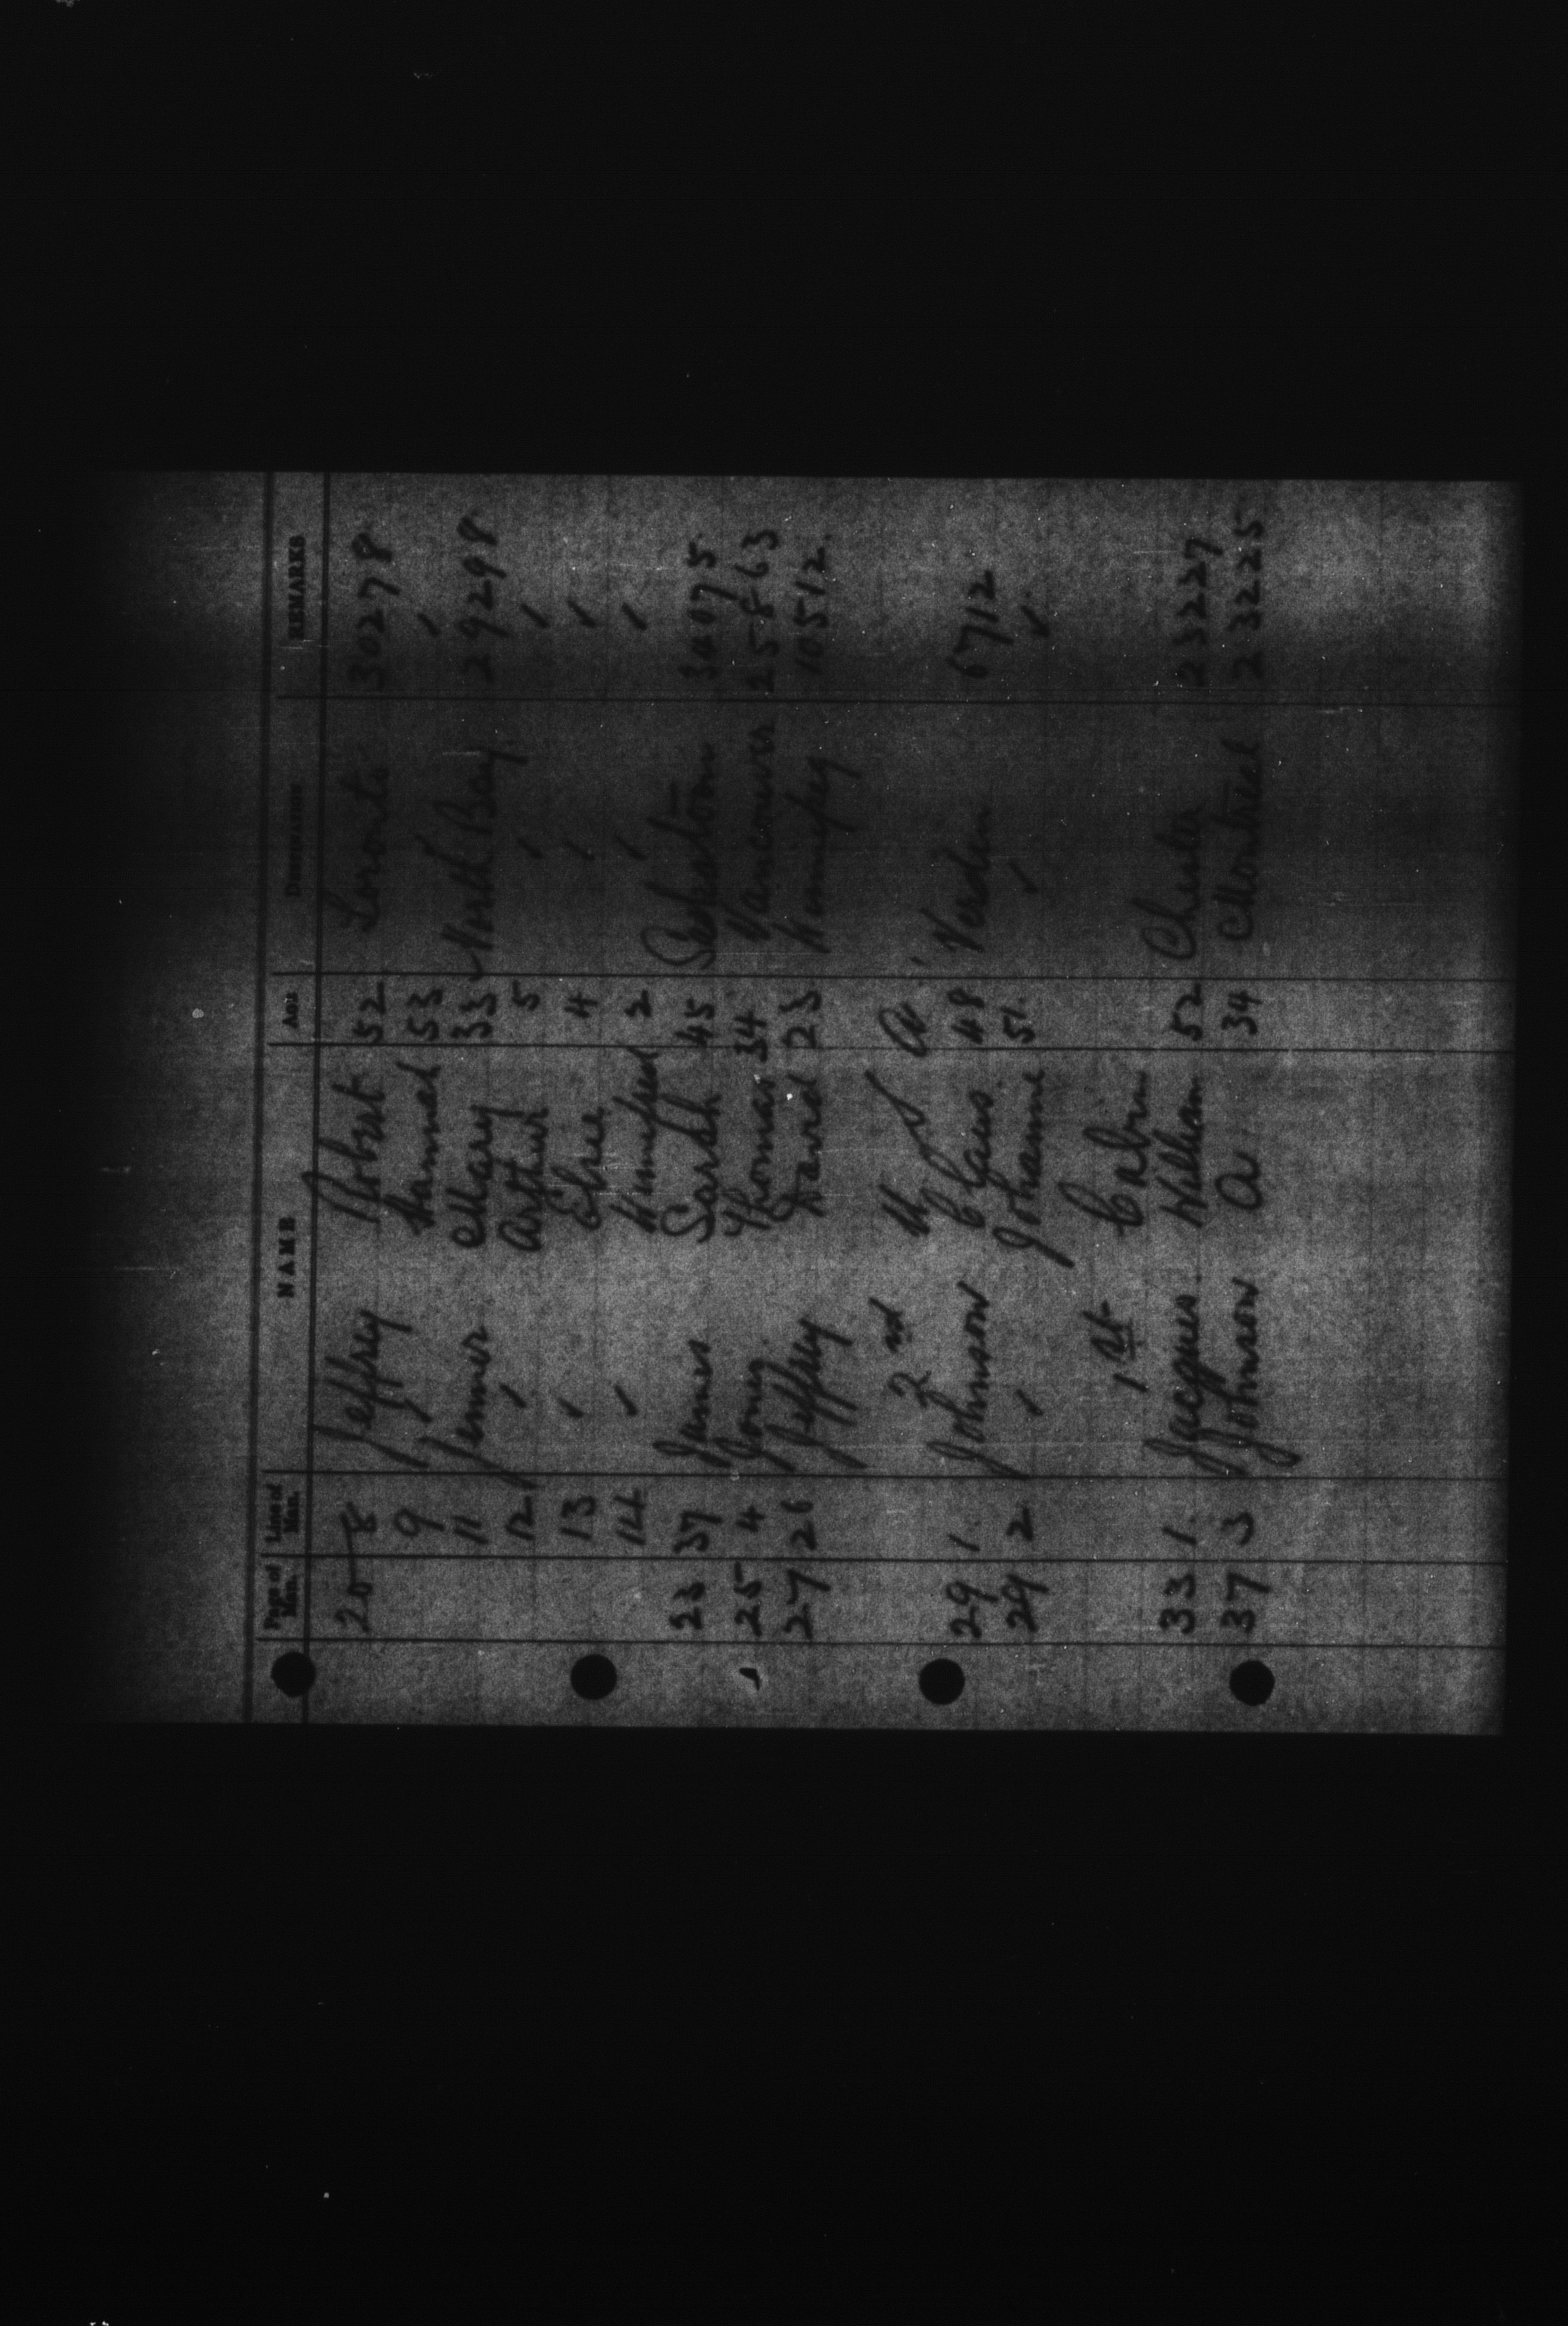 Page of Man. Line of Man. NAME AGE DESTINATION REMARKS
20 8 Jeffrey Robert 52 Toronto 30278
9 " Hannah 53 " "
11 Jenner Mary 33 North Bay 29298
12 " Arthur 5 " "
13 " Elsie 4 " "
14 " Winifred 2 " "
23 37 James Sarah 45 30075
25 4 Thomas 34 Vancouver 25863
27 26 Jeffrey David 23 Winnipeg 10512
2nd
29 1 Johnson Claus 48 Verdun 6712
29 2 " Johanne 51 " "
1st Cabin
33 1 Jacques William 52 Chester 23227
37 3 Johnson A 34 Montreal 23225